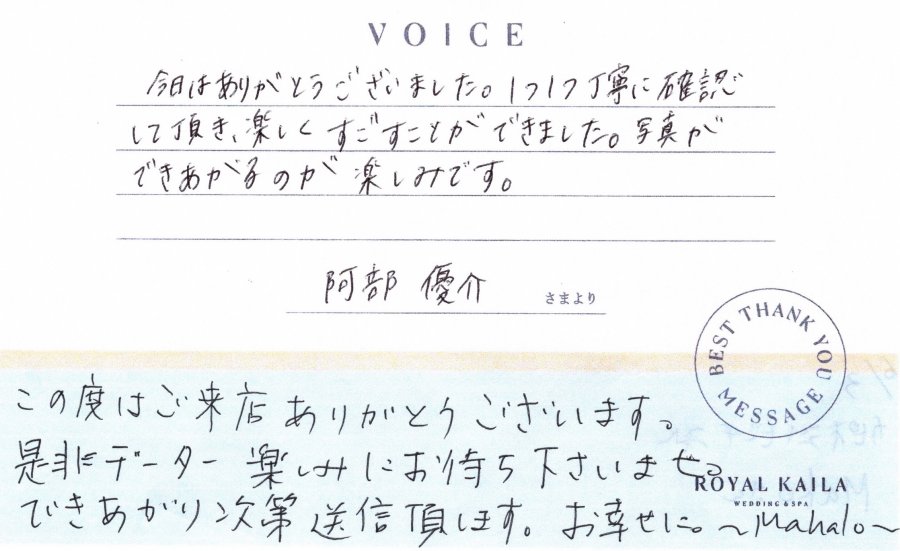 VOICE
今日はありがとうございました。1つ1つ丁寧に確認
して頂き、楽しくすごすことができました。写真が
できあがるのが楽しみです。
阿部 優介 さまより
BEST THANK YOU MESSAGE
この度はご来店ありがとうございます。
是非データー楽しみにお待ち下さいませ。
ROYAL KAILA
WEDDING & SPA
できあがり次第送信頂します。お幸せに。～Mahalo～